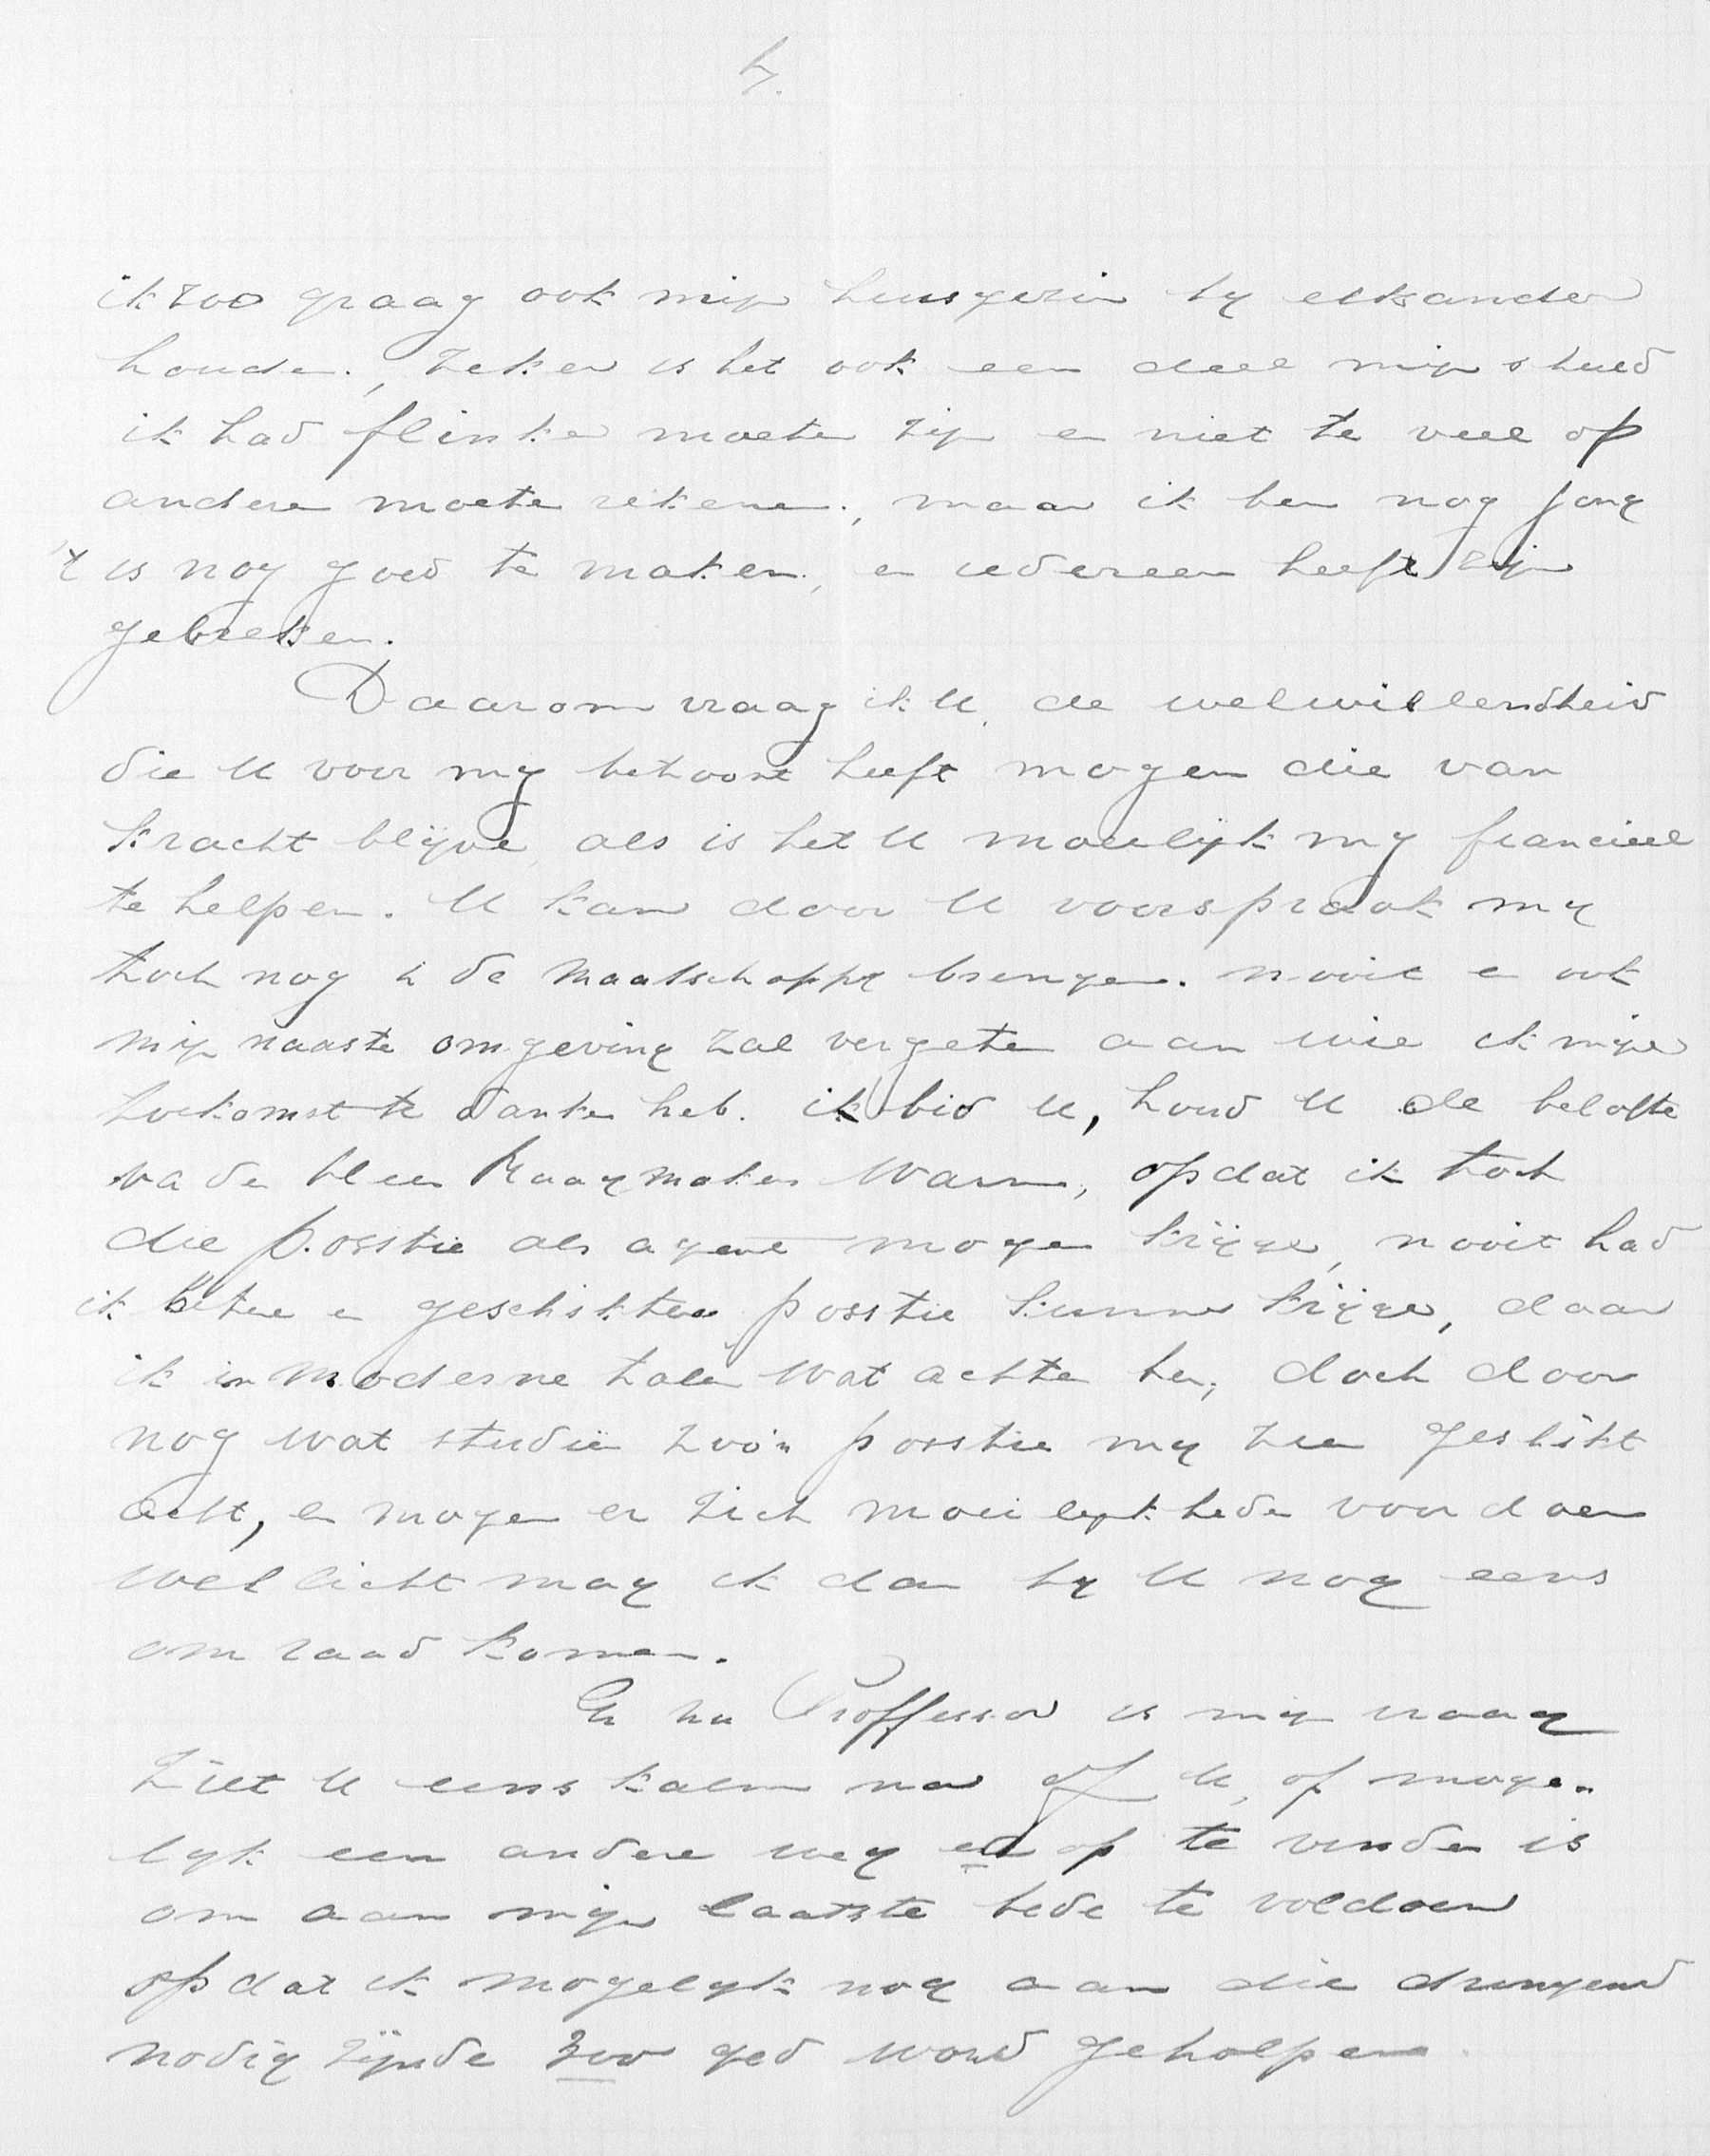 4.
ik zoo graag ook mijn huisgezin by elkander
houden., zeker is het ook een deel mijn schuld
ik had flinker moeten zijn en niet te veel op
anderen moeten rekenen., maar ik ben nog jong
't is nog goed te maken., en iedereen heeft zijn
gebreken.
Daarom vraag ik U, de welwillendheid
die U voor my betoont heeft mogen die van
kracht blijven, als is het U moeilijk my financieel
te helpen. U kan door U voorspraak my
toch nog in de maatschappy brengen. nooit en ook
mijn naaste omgeving zal vergeten aan wie ik mijne
toekomst te danken heb. ik bid U, houd U de belofte
van den Heer Raaymakers warm, opdat ik toch
die posstie als agent mogen krijgen, nooit had
ik betere en geschikter posstie kunnen krijgen, daar
ik in moderne talen wat achter ben, doch door
nog wat studie zoo'n posstie my zeer geschikt
acht, en mogen er zich moeilykheden voordoen
wellicht mag ik dan by U nog eens
om raad komen.
En nu Proffessor is mijn vraag
Ziet U eens kalm na of U, of moge-
lyk een andere weg op te vinden is
om aan mijn laatste bede te voldoen
opdat ik mogelyk nog aan die dringend
nodig zijnde 200 gld word geholpen.